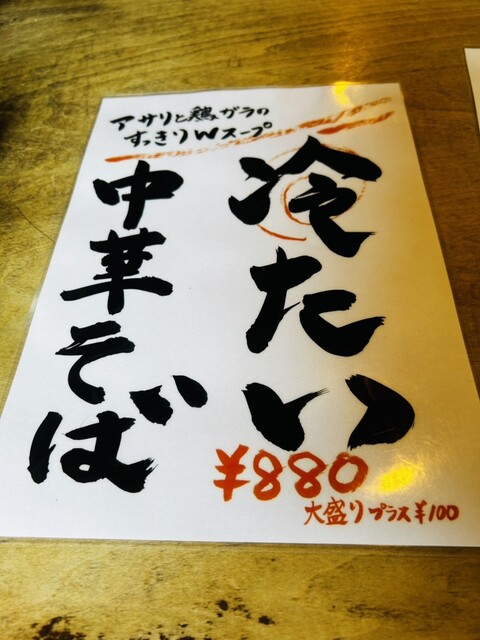 アサリと鶏ガラの
すっきりWスープ
冷たい
中華そば
¥880
大盛りプラス¥100